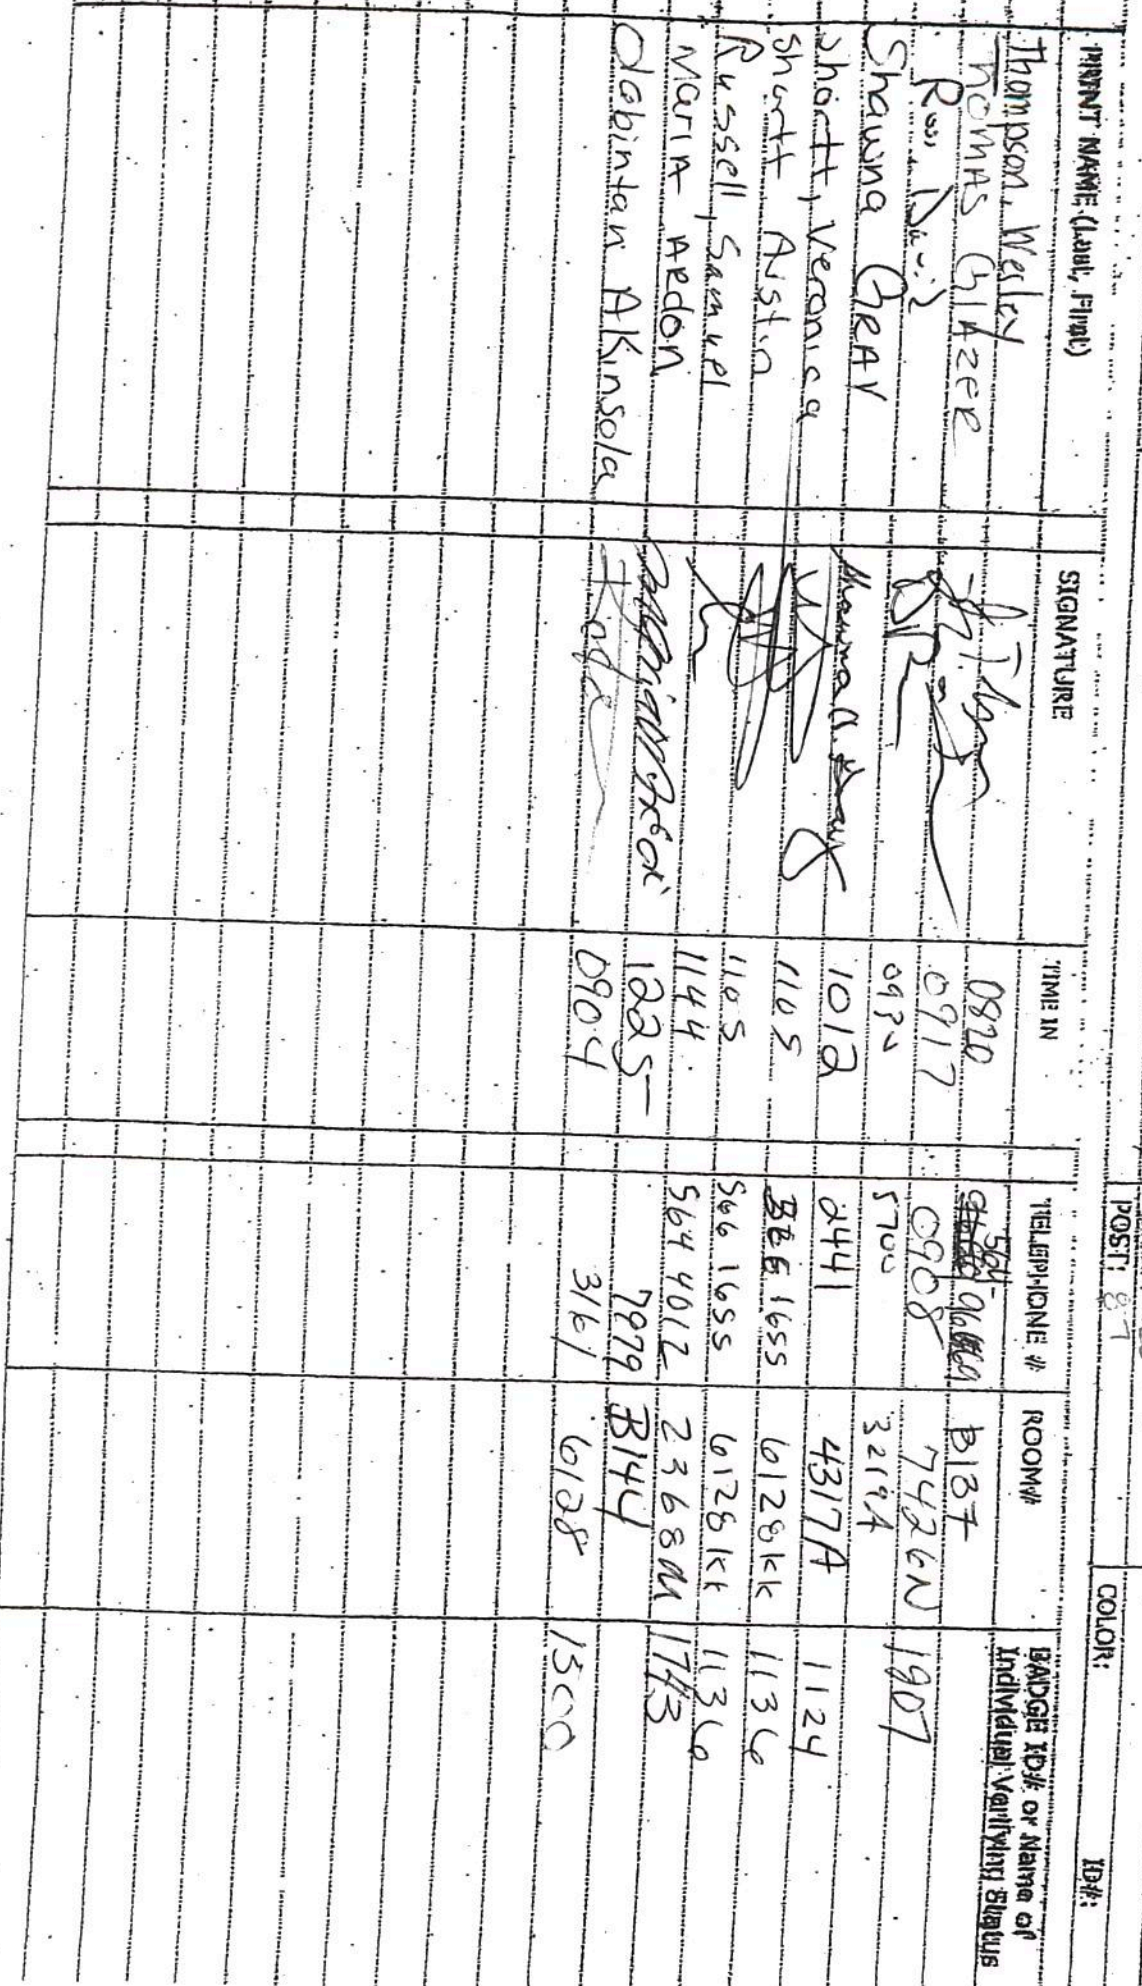 POST: 87 COLOR: ID#:
PRINT NAME (Last, First) SIGNATURE TIME IN TELEPHONE # ROOM# BADGE ID# or Name of Individual Verifying Status
Thompson, Wesley 0820 564- B137
THOMAS GlAZER 0917 0908 7426N 1907
Ross David 0930 5700 3219A
Shawna GRAY Shawna Gray 1012 2441 4317A 1124
Shortt, Veronica 1105 1655 6128KK 1136
Shortt Austin 1105 566 1655 6128KK 1136
Russell, Samuel 1144 564 4012 2368M 1743
MariA ARDON 1225 7979 B144
Olabintan Akinsola 0904 3161 6128 1500